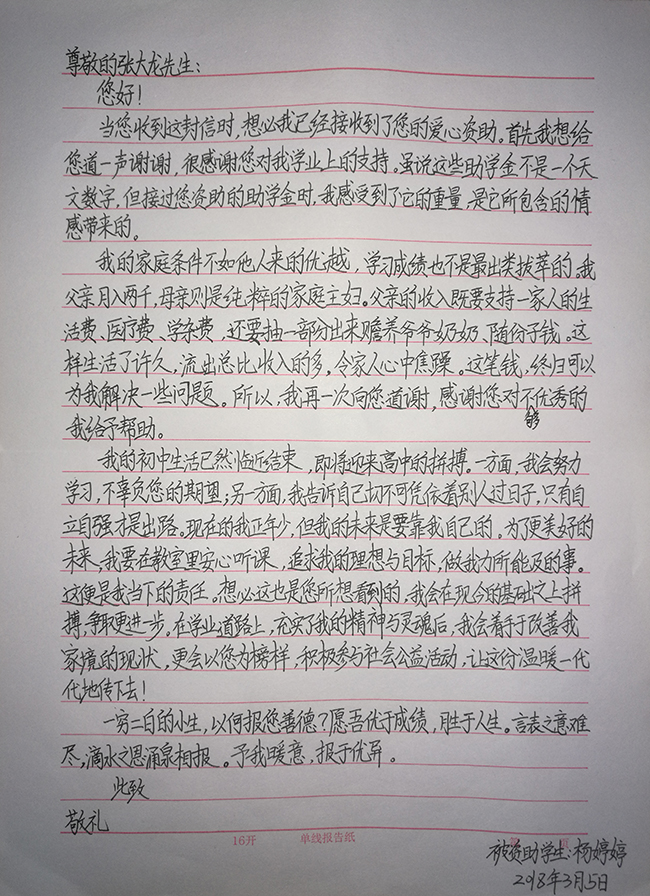 尊敬的张大龙先生：
您好！
当您收到这封信时，想必我已经接收到了您的爱心资助。首先我想给
您道一声谢谢，很感谢您对我学业上的支持。虽说这些助学金不是一个天
文数字，但接过您资助的助学金时，我感受到了它的重量，是它所包含的情
感带来的。
我的家庭条件不如他人来的优越，学习成绩也不是最出类拔萃的。我
父亲月入两千，母亲则是纯粹的家庭主妇。父亲的收入既要支持一家人的生
活费、医疗费、学杂费，还要抽一部分出来赡养爷爷奶奶、随份子钱。这
样生活了许久，流出总比收入的多。令家人心中焦躁。这笔钱，终归可以
为我解决一些问题。所以，我再一次向您道谢，感谢您对不够优秀的
我给予帮助。
我的初中生活已然临近结束，即将迎来高中的拼搏。一方面，我会努力
学习，不辜负您的期望；另一方面，我告诉自己切不可凭依着别人过日子，只有自
立自强才是出路。现在的我正年少，但我的未来是要靠我自己的。为了更美好的
未来，我要在教室里安心听课，追求我的理想与目标，做我力所能及的事。
这便是我当下的责任。想必这也是您所想看到的，我会在现今的基础之上拼
搏，争取更进一步。在学业道路上，充实了我的精神与灵魂后，我会着手于改善我
家境的现状，更会以您为榜样，积极参与社会公益活动，让这份温暖一代
代地传下去！
一穷二白的小生，以何报您善德？愿吾优于成绩，胜于人生。言表之意难
尽，滴水之恩涌泉相报。予我暖意，报于优异。
此致
敬礼
16开 单线报告纸
被资助学生：杨婷婷
2018年3月5日